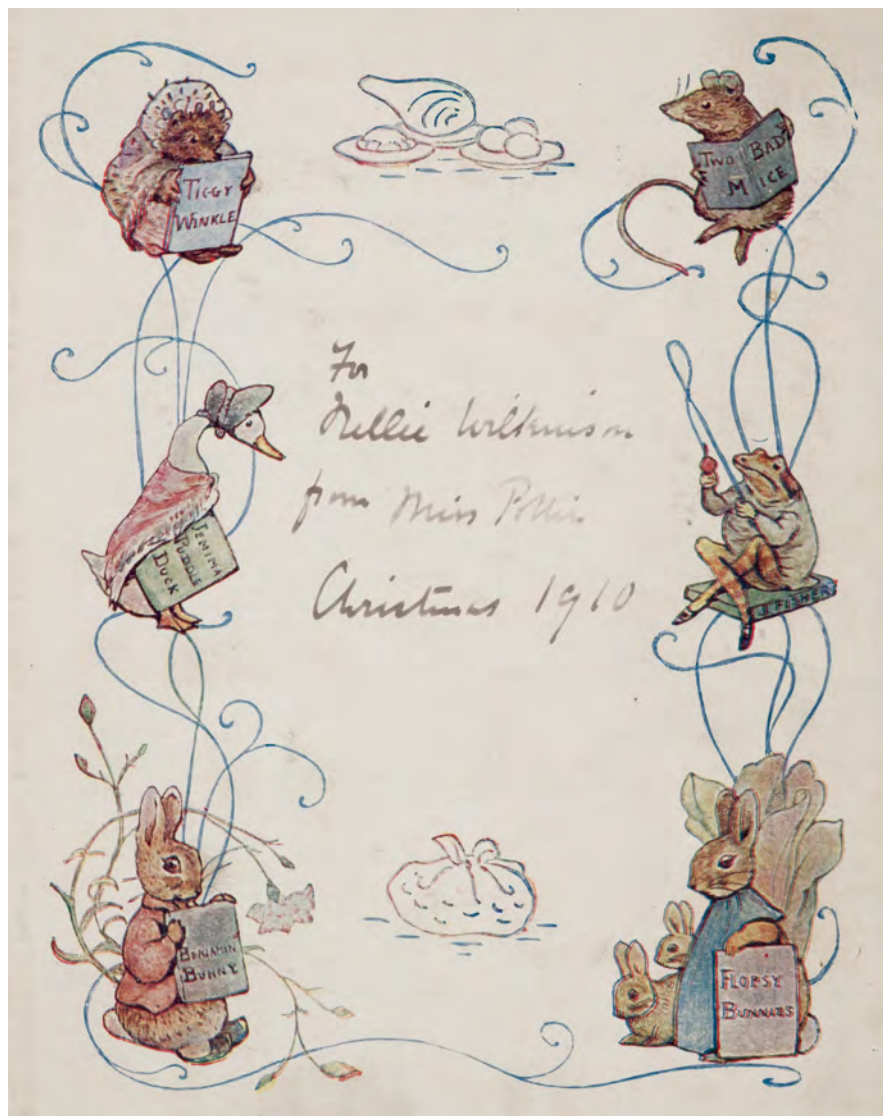 TIGGY
WINKLE
TWO BAD
MICE
For
Nellie Wilkinson
from Miss Potter
Christmas 1910
JEMIMA
PUDDLE
DUCK
J. FISHER
BENJAMIN
BUNNY
FLOPSY
BUNNIES